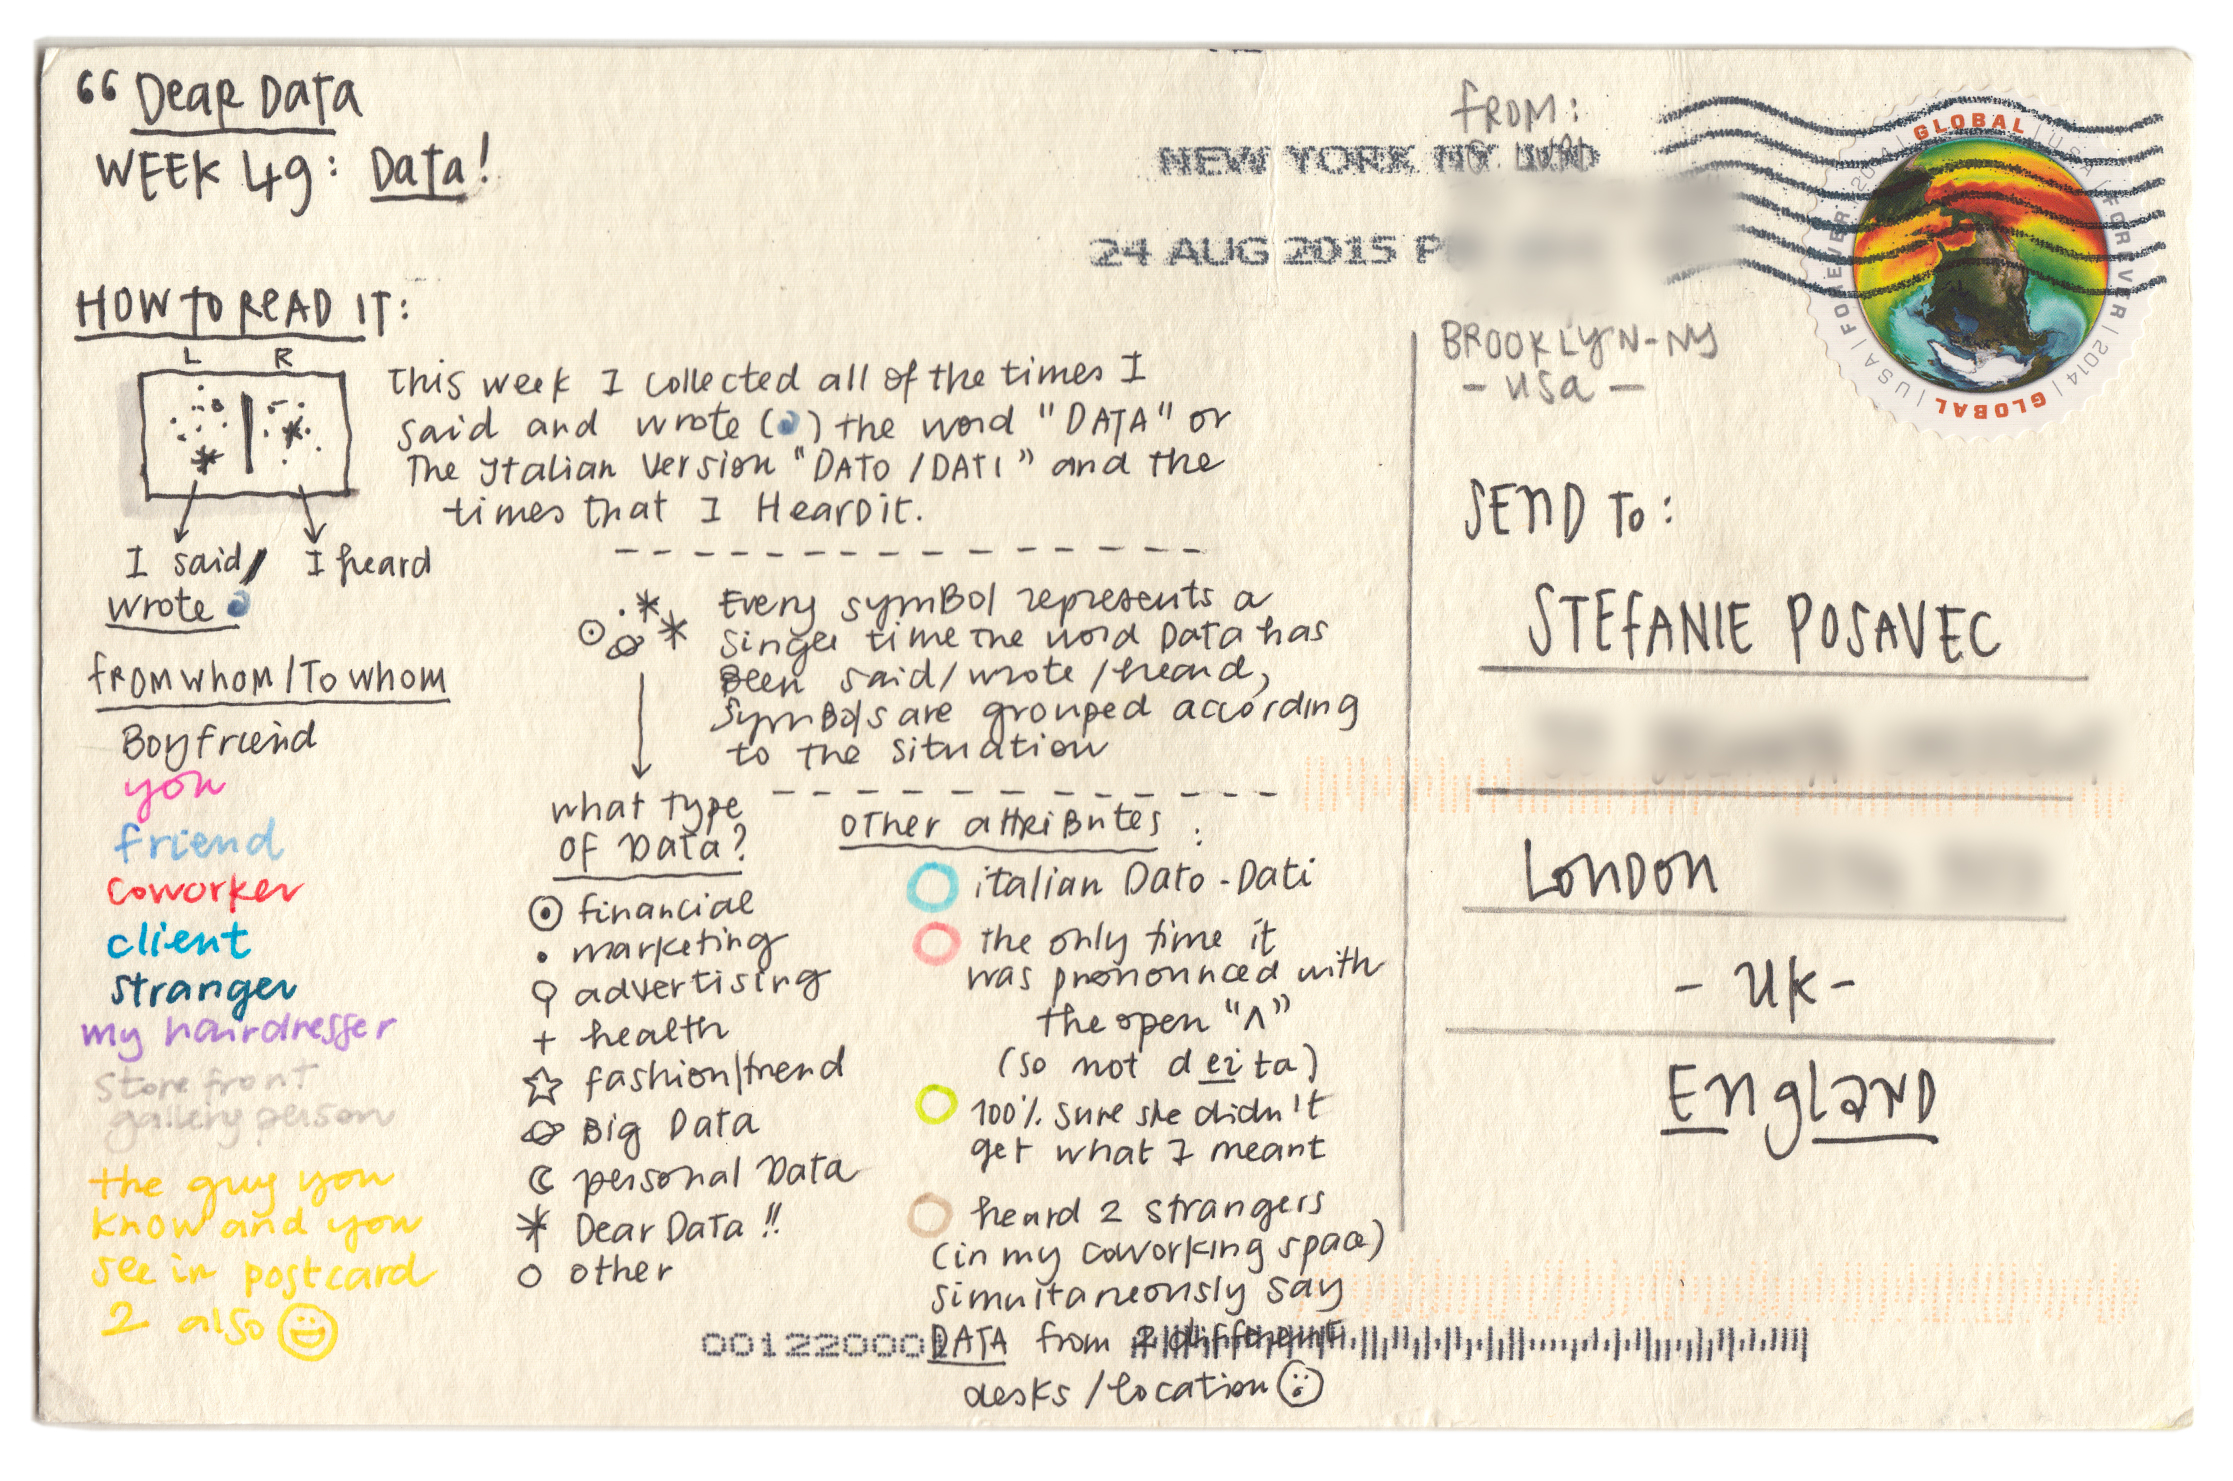 “ Dear Data
WEEK 49: Data!
HOW TO READ IT:
L R
I said/ I heard
wrote
This week I collected all of the times I
said and wrote ( ) the word "DATA" or
The Italian version "DATO / DATI" and the
times that I Heard it.
Every symbol represents a
singel time the word Data has
Been said / wrote / heard,
symbols are grouped according
to the situation
from whom / To whom
Boyfriend
you
friend
coworker
client
stranger
my hairdresser
store front
gallery person
the guy you
know and you
see in postcard
2 also
what type
OF Data?
financial
marketing
advertising
health
fashion/trend
Big Data
personal Data
Dear Data !!
other
other attributes :
italian Dato - Dati
the only time it
was pronounced with
the open "A"
(so not deita)
100% sure she didn't
get what I meant
heard 2 strangers
(in my coworking space)
simultaneously say
DATA from 2 different
desks / location
00122000
NEW YORK NY
24 AUG 2015 P
from:
BROOKLYN - NY
- USA -
GLOBAL | USA | FOREVER | 2014 | GLOBAL | USA | FOREVER 2014
SEND To:
STEFANIE POSAVEC
LONDON
- UK -
ENGLAND